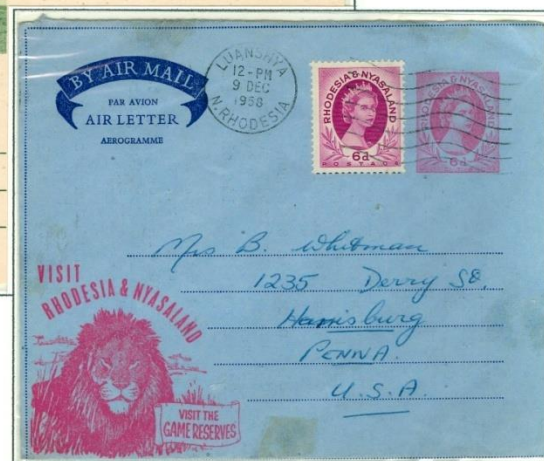 BY AIR MAIL
PAR AVION
AIR LETTER
AEROGRAMME
LUANSHYA
12-PM
9 DEC
1958
N. RHODESIA
RHODESIA & NYASALAND
6d
POSTAGE
RHODESIA & NYASALAND
6d
Mrs B. Whitman
1235 Derry St.
Harrisburg
PENNA.
U.S.A.
VISIT
RHODESIA & NYASALAND
VISIT THE
GAME RESERVES